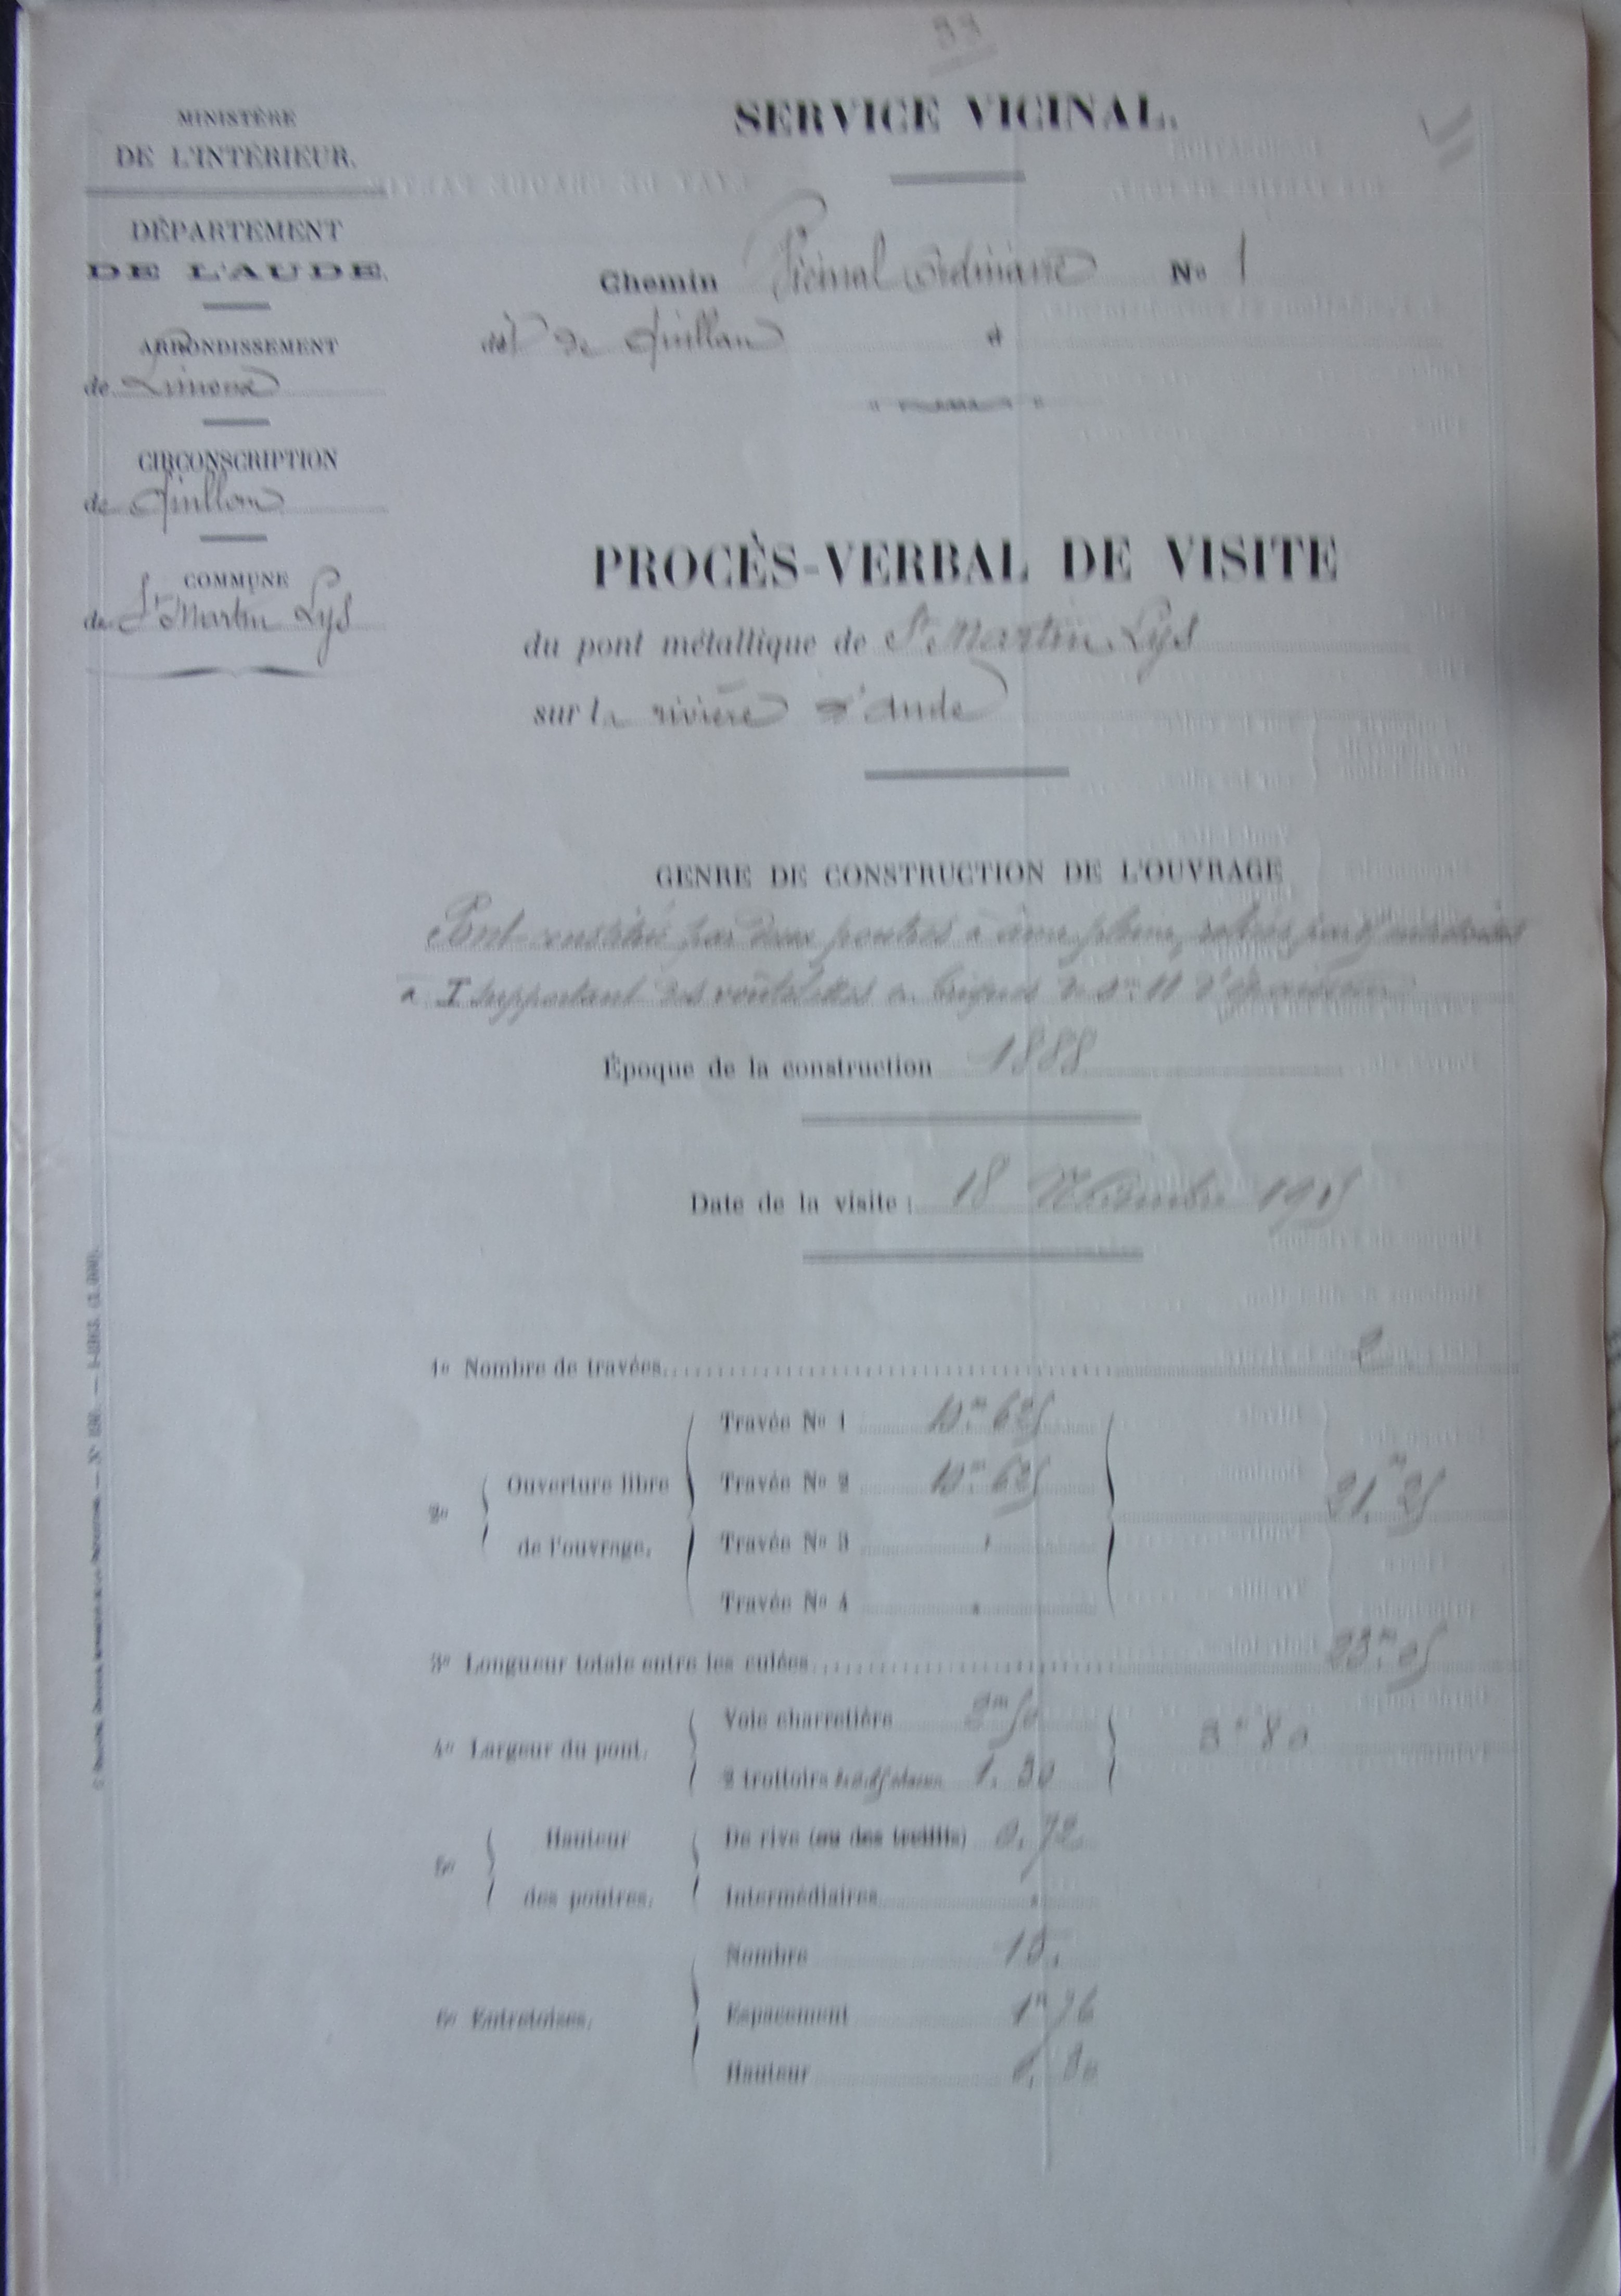 99
SERVICE VICINAL.
MINISTÈRE
DE L'INTÉRIEUR.
DÉPARTEMENT
DE L'AUDE.
ARRONDISSEMENT
de Limoux
CIRCONSCRIPTION
de Quillan
COMMUNE
de St Martin Lys
Chemin Vicinal Ordinaire No 1
de Quillan
PROCÈS-VERBAL DE VISITE
du pont métallique de St Martin Lys
sur la rivière d'Aude
GENRE DE CONSTRUCTION DE L'OUVRAGE
Pont constitué par deux poutres à âme pleine, reliées par des entretoises
à I supportant des voûtelettes en briques de 0m 11 d'épaisseur
Époque de la construction 1888
Date de la visite : 18 1915
1o Nombre de travées 2
2o Ouverture libre de l'ouvrage.
Travée No 1 10m 625
Travée No 2 10m 625
Travée No 3
Travée No 4
21m 25
3o Longueur totale entre les culées 23m 05
4o Largeur du pont.
Voie charretière 2m 50
2 trottoirs 1. 30
3m 80
5o Hauteur des poutres.
De rive (ou des treillis) 0. 72
Intermédiaires
6o Entretoises.
Nombre 15.
Espacement 1m 76
Hauteur